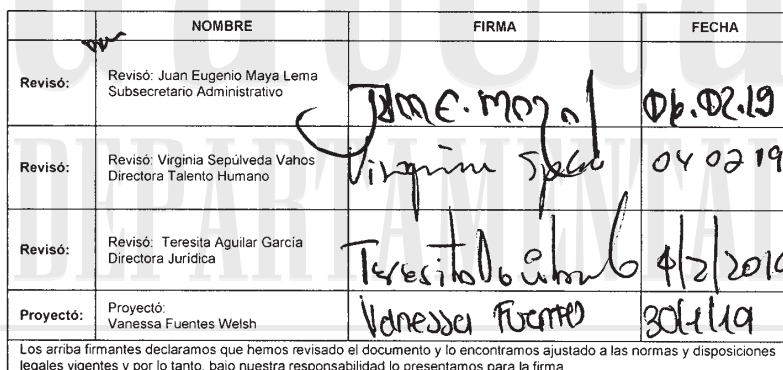 NOMBRE FIRMA FECHA
Revisó: Revisó: Juan Eugenio Maya Lema
Subsecretario Administrativo
06.02.19
Revisó: Revisó: Virginia Sepúlveda Vahos
Directora Talento Humano
Virginia 04 02 19
Revisó: Revisó: Teresita Aguilar García
Directora Jurídica
Teresita 4/2/2019
Proyectó: Proyectó:
Vanessa Fuentes Welsh
Vanessa Fuentes 30/1/19
Los arriba firmantes declaramos que hemos revisado el documento y lo encontramos ajustado a las normas y disposiciones
legales vigentes y por lo tanto, bajo nuestra responsabilidad lo presentamos para la firma
DEPARTAMENTAL